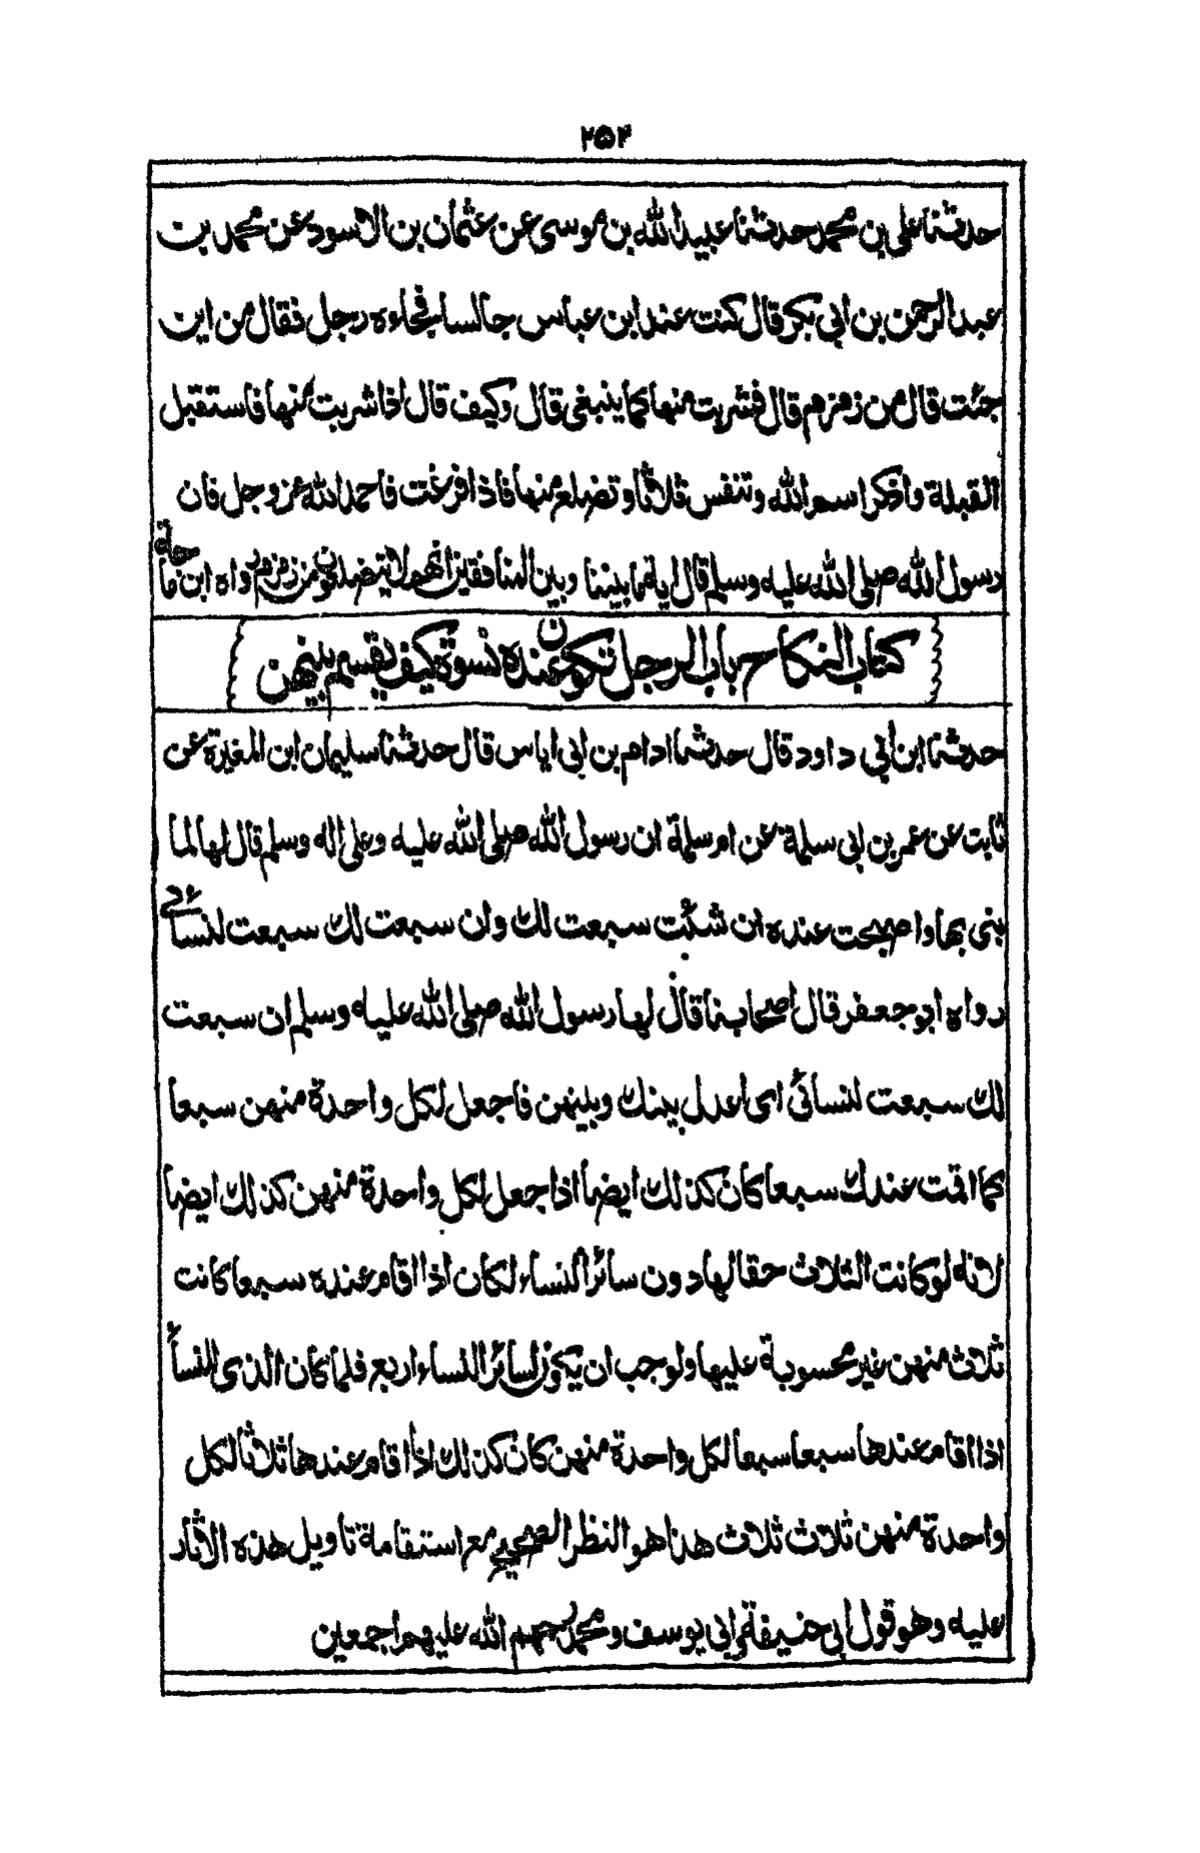 ۲۵۴
حدثنا علی بن محمد حدثنا عبیدالله بن موسی عن عثمان بن الاسود عن محمد بن
عبدالرحمن بن ابی بکر قال کنت عند ابن عباس جالسا فجاءه رجل فقال من این
جئت قال من زمزم قال فشربت منها کما ینبغی قال وکیف قال اذا شربت منها فاستقبل
القبلة واذکر اسم الله وتنفس ثلاثا وتضلع منها فاذا فرغت فاحمد الله عز وجل فان
رسول الله صلی الله علیه وسلم قال ایة ما بیننا وبین المنافقین انهم لا یتضلعون من زمزم رواه ابن ماجة
کتاب النکاح باب الرجل تکون عنده نسوة کیف یقسم بینهن
حدثنا ابن ابی داود قال حدثنا ادام بن ابی ایاس قال حدثنا سلیمان ابن المغیرة عن
ثابت عن عمر بن ابی سلمة عن ام سلمة ان رسول الله صلی الله علیه وعلی اله وسلم قال لها لما
بنی بها واصبحت عنده ان شئت سبعت لك وان سبعت لك سبعت لنسائی
رواه ابو جعفر قال اصحابنا قال لها رسول الله صلی الله علیه وسلم ان سبعت
لك سبعت لنسائی ای اعدل بینك وبینهن فاجعل لکل واحدة منهن سبعا
کما اقمت عندك سبعا کان کذلك ایضا اذا جعل لکل واحدة منهن کذلك ایضا
لانه لو کانت الثلاث حقا لها دون سائر النساء لکان اذا اقام عنده سبعا کانت
ثلاث منهن غیر محسوبة علیها ولوجب ان یکون لسائر النساء اربع فلما کان الذی للنساء
اذا اقام عندها سبعا سبعا لکل واحدة منهن کان کذلك اذا اقام عندها ثلاثا لکل
واحدة منهن ثلاث ثلاث هذا هو النظر الصحیح مع استقامة تاویل هذه الاثار
علیه وهو قول ابی حنیفة وابی یوسف ومحمد رحمهم الله علیهم اجمعین